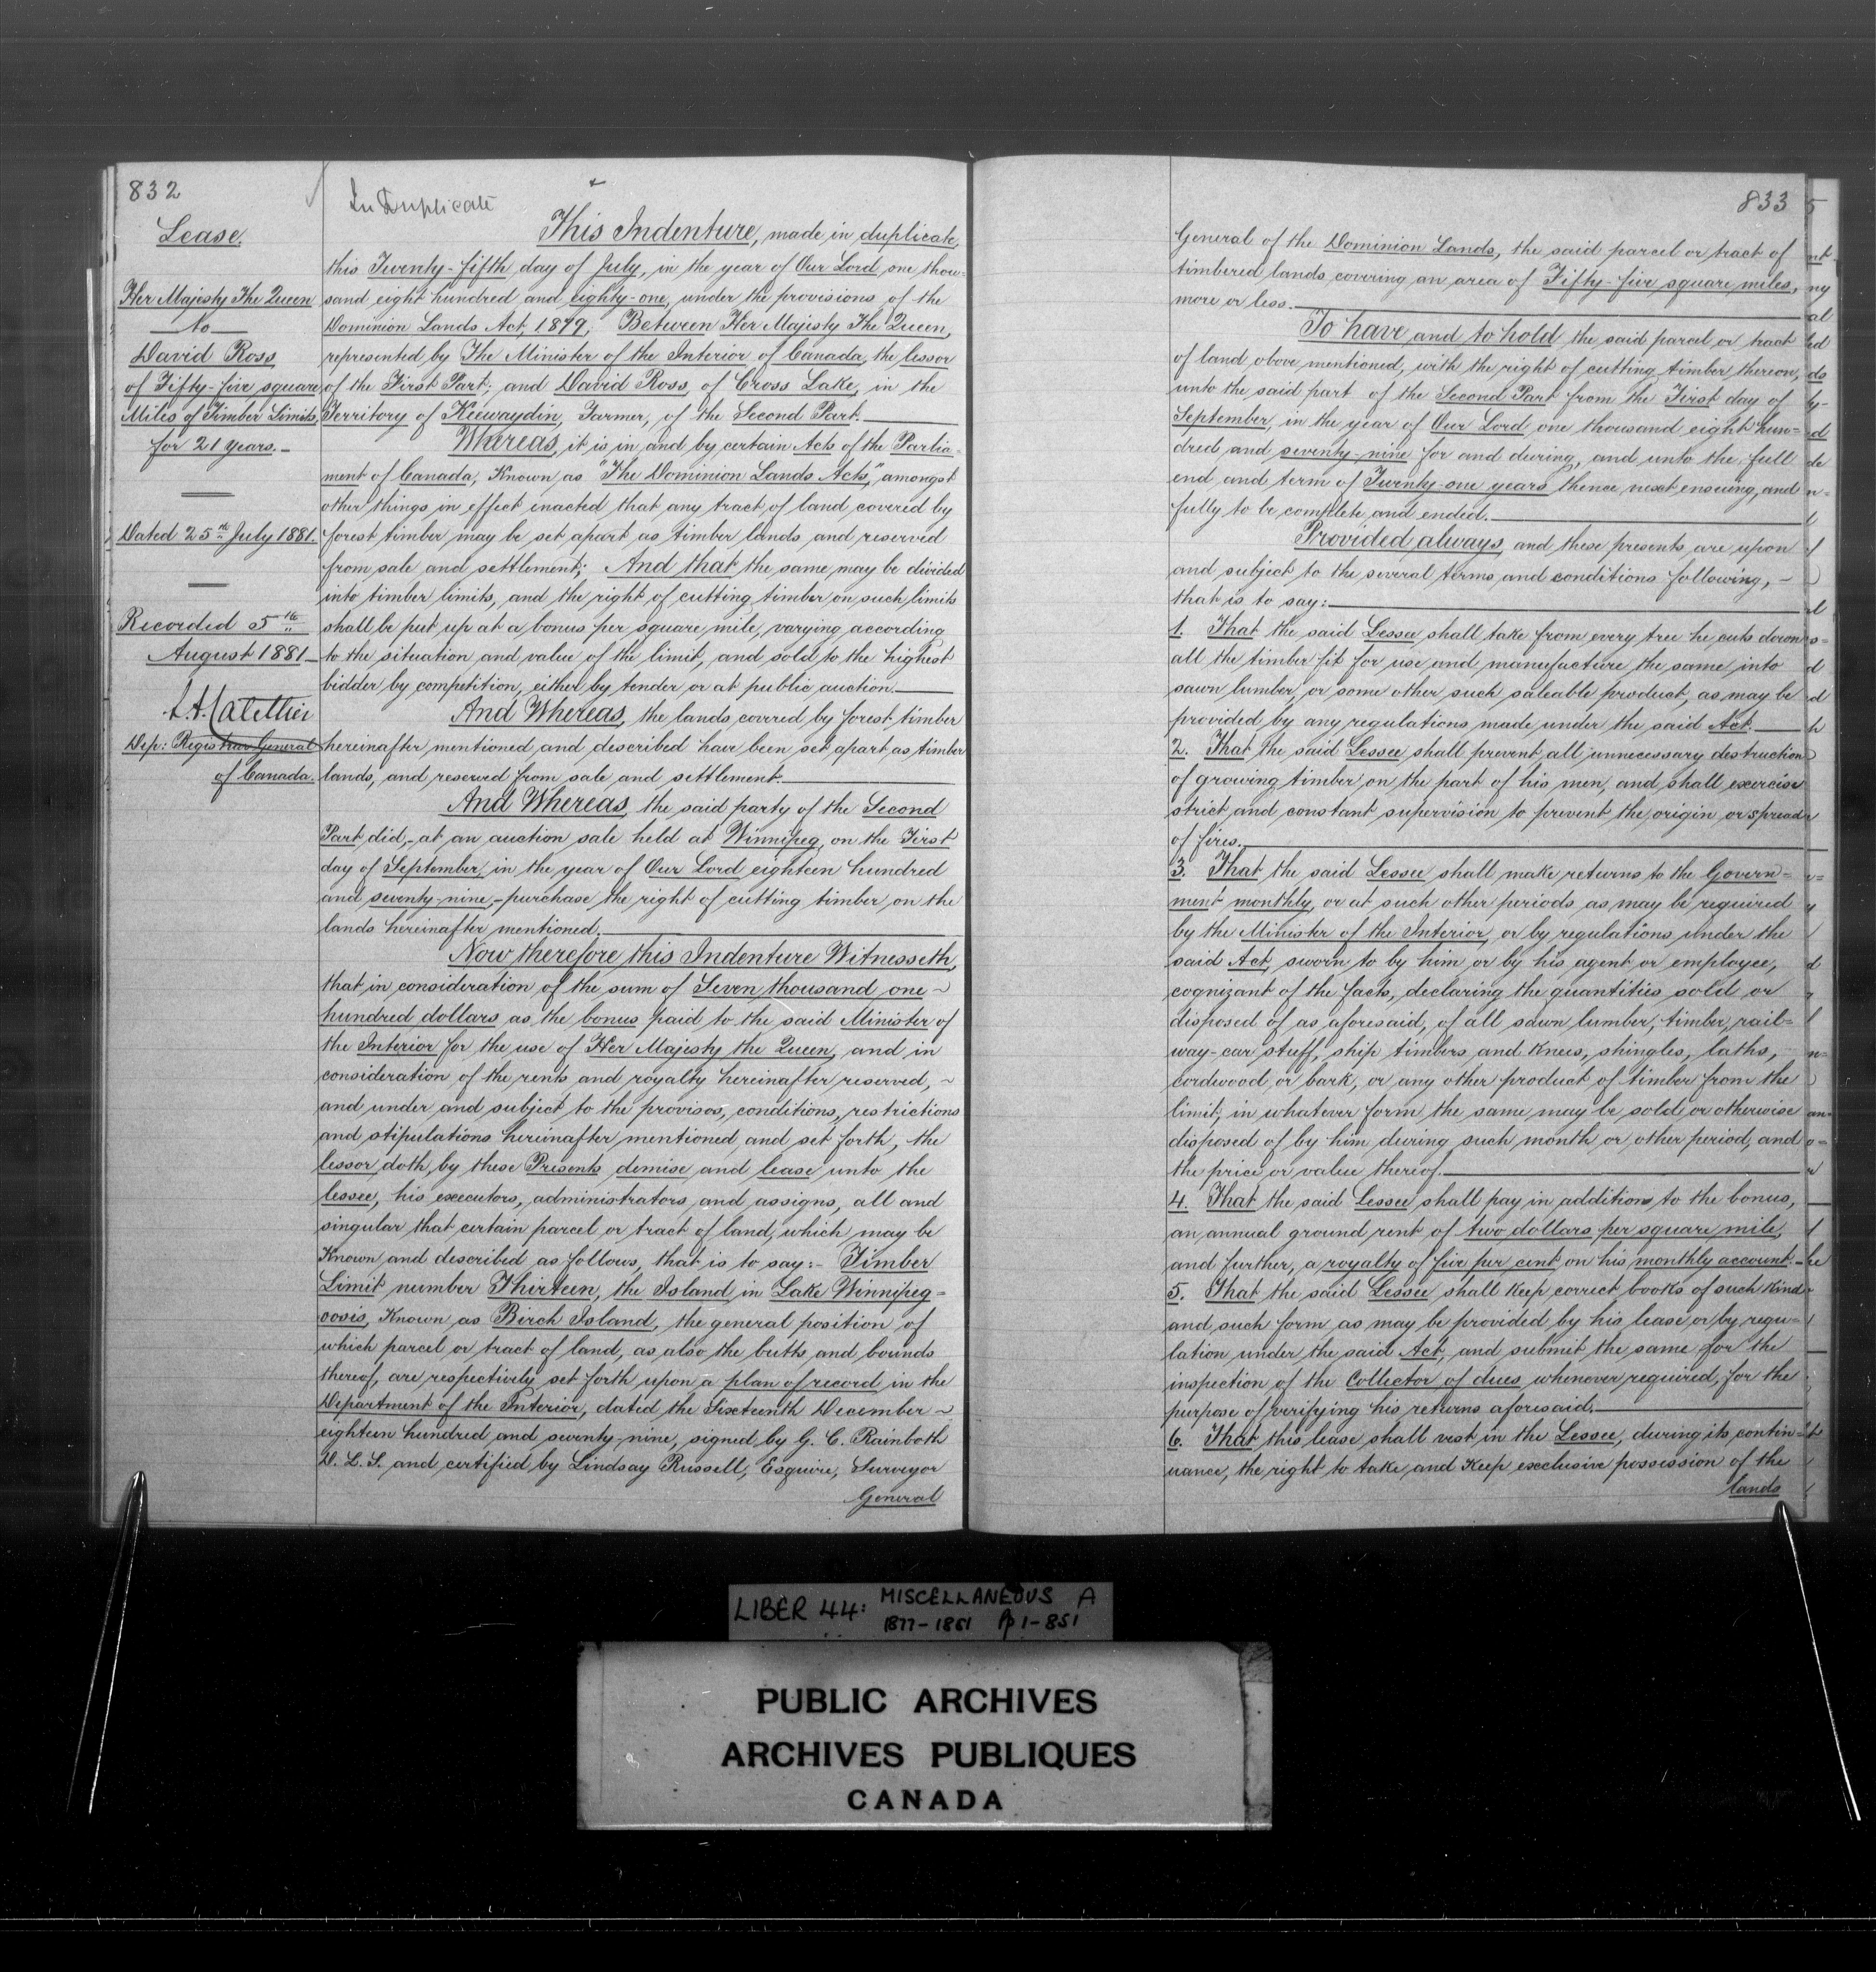 832
Lease.
Her Majesty The Queen
To
David Ross
of Fifty-five square
Miles of Timber Limits,
for 21 years.-
Dated 25th July 1881.
Recorded 5th
August 1881
Dep: Registrar General
of Canada.
In Duplicate
This Indenture, made in duplicate,
this Twenty-fifth day of July, in the year of Our Lord one thou=
sand eight hundred and eighty-one, under the provisions of the
Dominion Lands Act, 1879, Between Her Majesty The Queen,
represented by The Minister of the Interior of Canada, the lessor
of the First Part; and David Ross, of Cross Lake, in the
Territory of Keewaydin, Farmer, of the Second Part.
Whereas, it is in and by certain Acts of the Parlia=
ment of Canada, Known as "The Dominion Lands Acts," amongst
other things in effect enacted that any tract of land covered by
forest timber may be set apart as timber lands and reserved
from sale and settlement; And that the same may be divided
into timber limits, and the right of cutting timber on such limits
shall be put up at a bonus per square mile, varying according
to the situation and value of the limit, and sold to the highest
bidder by competition, either by tender or at public auction.
And Whereas, the lands covered by forest timber
hereinafter mentioned and described have been set apart as timber
lands, and reserved from sale and settlement.
And Whereas, the said party of the Second
Part did,- at an auction sale held at Winnipeg, on the First
day of September, in the year of Our Lord eighteen hundred
and seventy-nine,- purchase the right of cutting timber on the
lands hereinafter mentioned.
Now therefore this Indenture Witnesseth,
that in consideration of the sum of Seven thousand one ~
hundred dollars as the bonus paid to the said Minister of
the Interior for the use of Her Majesty the Queen, and in
consideration of the rents and royalty hereinafter reserved, ~
and under and subject to the provisos, conditions, restrictions
and stipulations hereinafter mentioned and set forth, the
lessor doth, by these Presents demise and lease unto the
lessee, his executors, administrators and assigns, all and
singular that certain parcel or tract of land, which may be
Known and described as follows, that is to say:- Timber
Limit number Thirteen, the Island in Lake Winnipeg=
oosis, Known as Birch Island, the general position of
which parcel or tract of land, as also the butts and bounds
thereof, are respectively set forth upon a plan of record in the
Department of the Interior, dated the Sixteenth December ~
eighteen hundred and seventy-nine, signed by G. C. Rainboth
D. L. S. and certified by Lindsay Russell, Esquire, Surveyor
General
833
General of the Dominion Lands, the said parcel or tract of
timbered lands covering an area of Fifty-five square miles,
more or less.
To have and to hold the said parcel or tract
of land above mentioned, with the right of cutting timber thereon,
unto the said part of the Second Part from the First day of
September, in the year of Our Lord one thousand eight hun=
dred and seventy-nine for and during, and unto the full
end and term of Twenty-one years thence next ensuing, and
fully to be complete and ended.
Provided always, and these presents are upon
and subject to the several terms and conditions following, -
that is to say:
1. That the said Lessee shall take from every tree he cuts down
all the timber fit for use and manufacture the same into
sawn lumber, or some other such saleable product, as may be
provided by any regulations made under the said Act.
2. That the said Lessee shall prevent all unnecessary destruction
of growing timber on the part of his men, and shall exercise
strict and constant supervision to prevent the origin or spread
of fires.
3. That the said Lessee shall make returns to the Govern=
ment monthly, or at such other periods as may be required
by the Minister of the Interior, or by regulations under the
said Act, sworn to by him or by his agent or employee,
cognizant of the facts, declaring the quantities sold or
disposed of as aforesaid, of all sawn lumber, timber, rail=
way-car stuff, ship timbers and knees, shingles, laths,
cordwood or bark, or any other product of timber from the
limit, in whatever form the same may be sold or otherwise
disposed of by him during such month or other period, and
the price or value thereof.
4. That the said Lessee shall pay in addition to the bonus,
an annual ground rent of two dollars per square mile,
and further, a royalty of five per cent on his monthly account.-
5. That the said Lessee shall keep correct books of such kind
and such form as may be provided by his lease or by regu=
lation under the said Act, and submit the same for the
inspection of the Collector of dues whenever required, for the
purpose of verifying his returns aforesaid.
6. That this lease shall vest in the Lessee, during its contin=
uance, the right to take and keep exclusive possession of the
lands
LIBER 44: MISCELLANEOUS A
1877-1881 Pp 1-851
PUBLIC ARCHIVES
ARCHIVES PUBLIQUES
CANADA